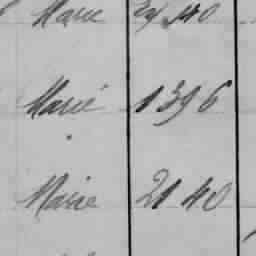 Marie 24 140
Marie 1396
Marie 2140